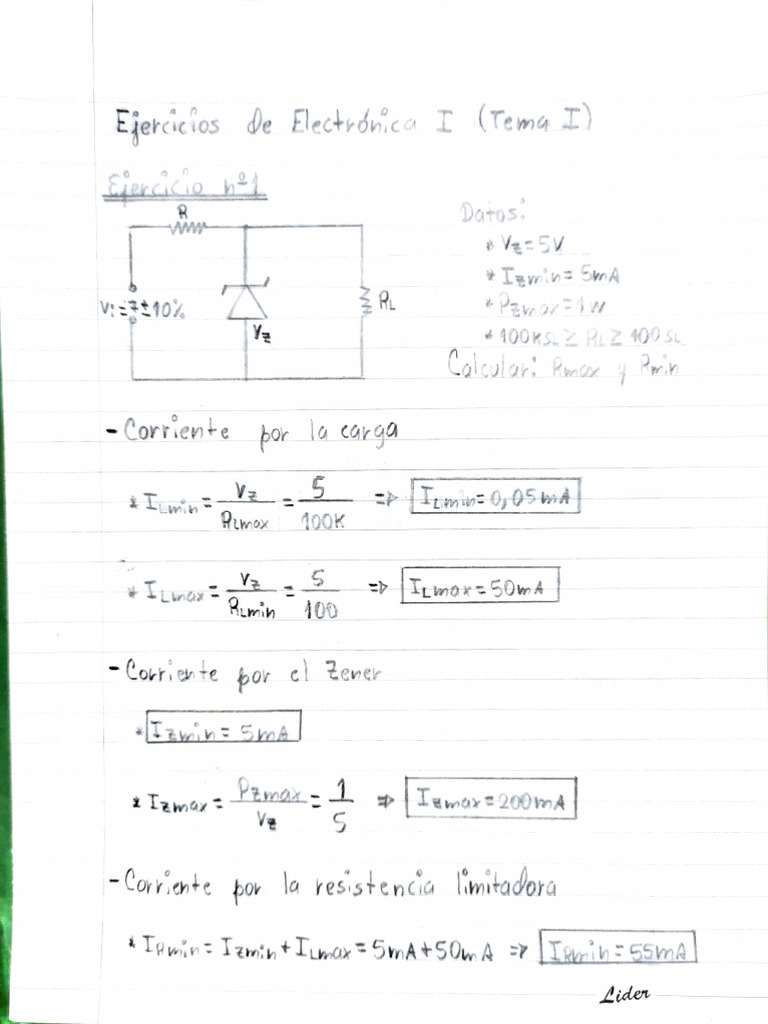 Ejercicios de Electrónica I (Tema I)
Ejercicio nº1
R
Vi=7±10%
Vz
RL
Datos:
* Vz=5V
* Izmin=5mA
* Pzmax=1w
* 100KΩ ≥ RL ≥ 100Ω
Calcular: Rmax y Rmin
- Corriente por la carga
* ILmin = Vz/RLmax = 5/100K => ILmin=0,05mA
* ILmax = Vz/RLmin = 5/100 => ILmax=50mA
- Corriente por el Zener
* Izmin = 5mA
* Izmax = Pzmax/Vz = 1/5 => Izmax=200mA
- Corriente por la resistencia limitadora
* IRmin = Izmin + ILmax = 5mA+50mA => IRmin=55mA
Lider